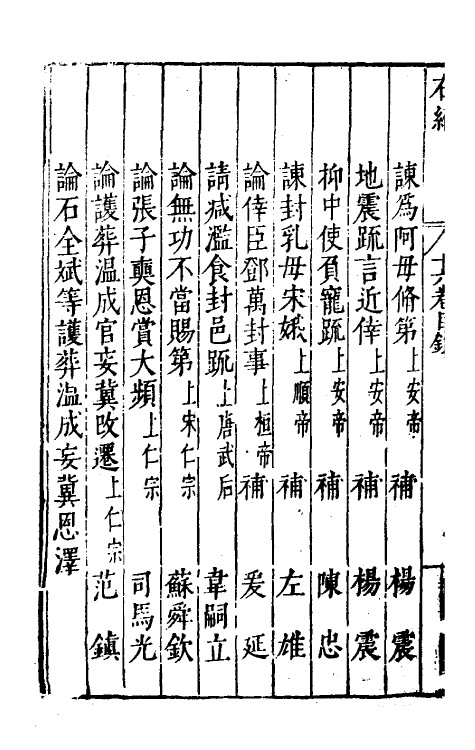 右編
十六卷目錄
諫爲阿母脩第 上安帝 補 楊震
地震疏言近倖 上安帝 補 楊震
抑中使負寵疏 上安帝 補 陳忠
諫封乳母宋娥 上順帝 補 左雄
論倖臣鄧萬封事 上桓帝 補 爰延
請减濫食封邑疏 上唐武后 韋嗣立
論無功不當賜第 上宋仁宗 蘇舜欽
論張子奭恩賞大頻 上仁宗 司馬光
論護葬溫成官妄冀改遷 上仁宗 范鎮
論石全斌等護葬溫成妄冀恩澤